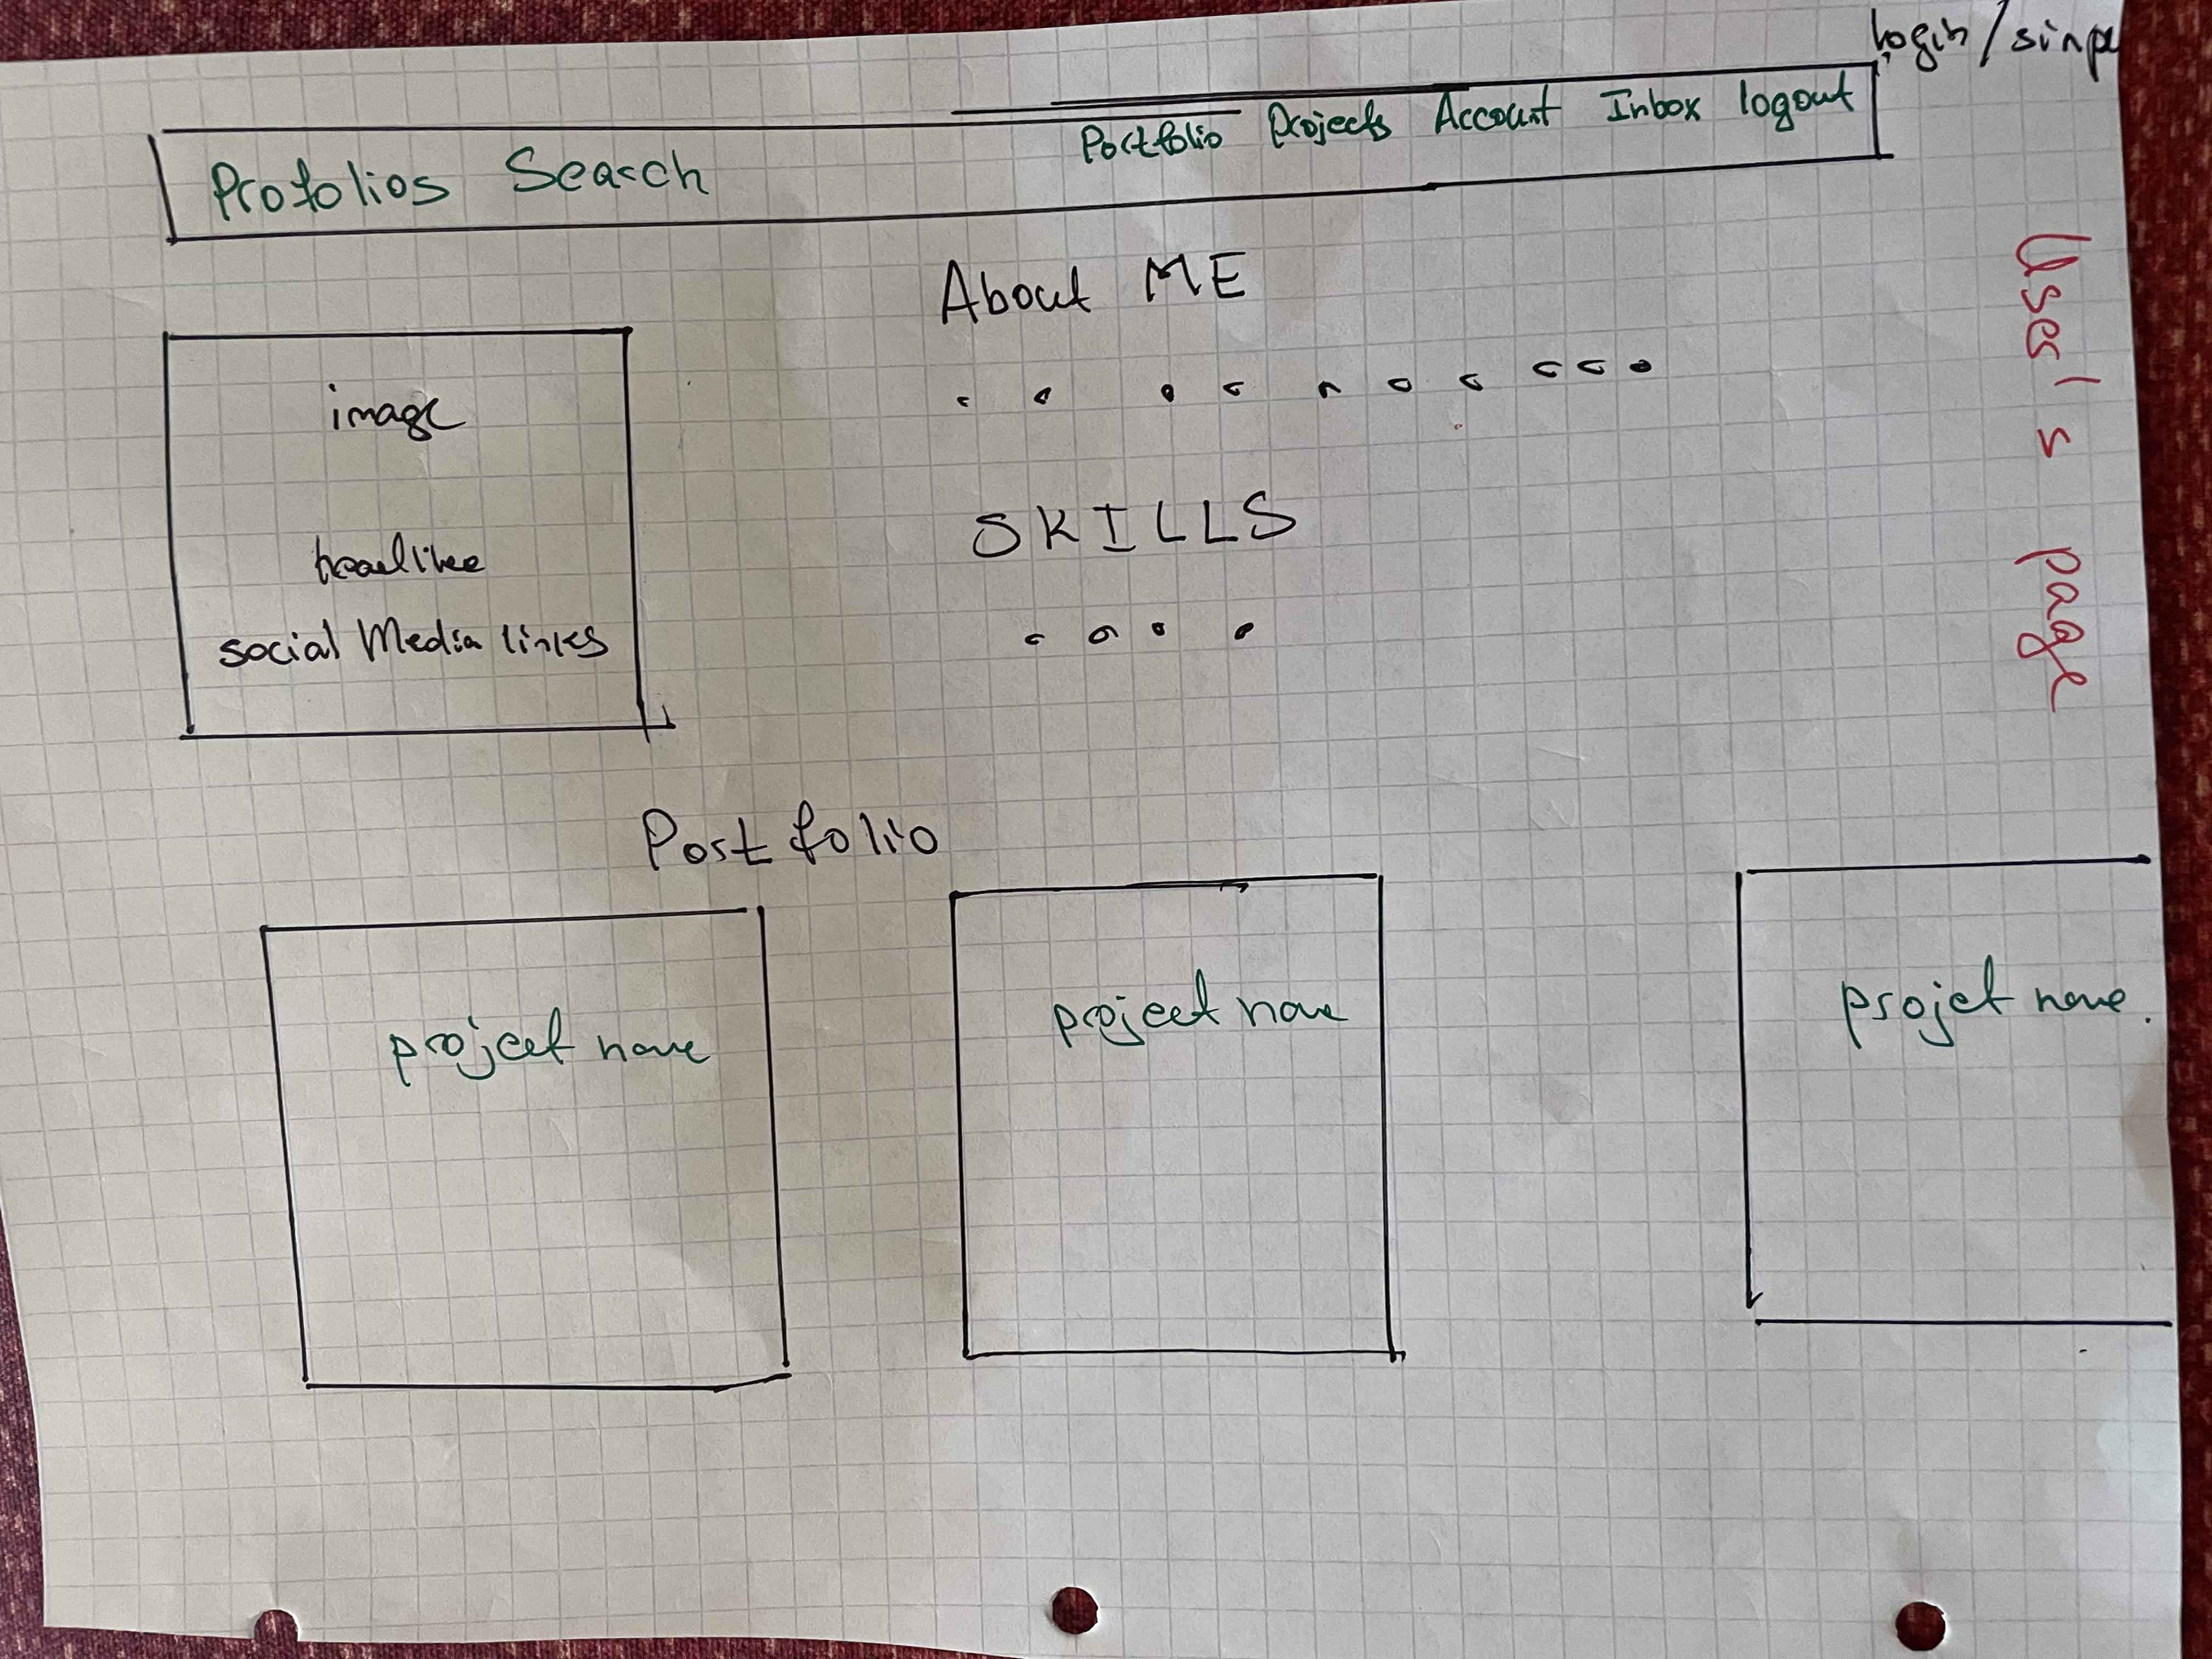 login/sinp
Protolios Search Portfolio Projects Account Inbox logout
About ME
image
SKILLS
social Media links
User's page
Portfolio
project name
project name
project name